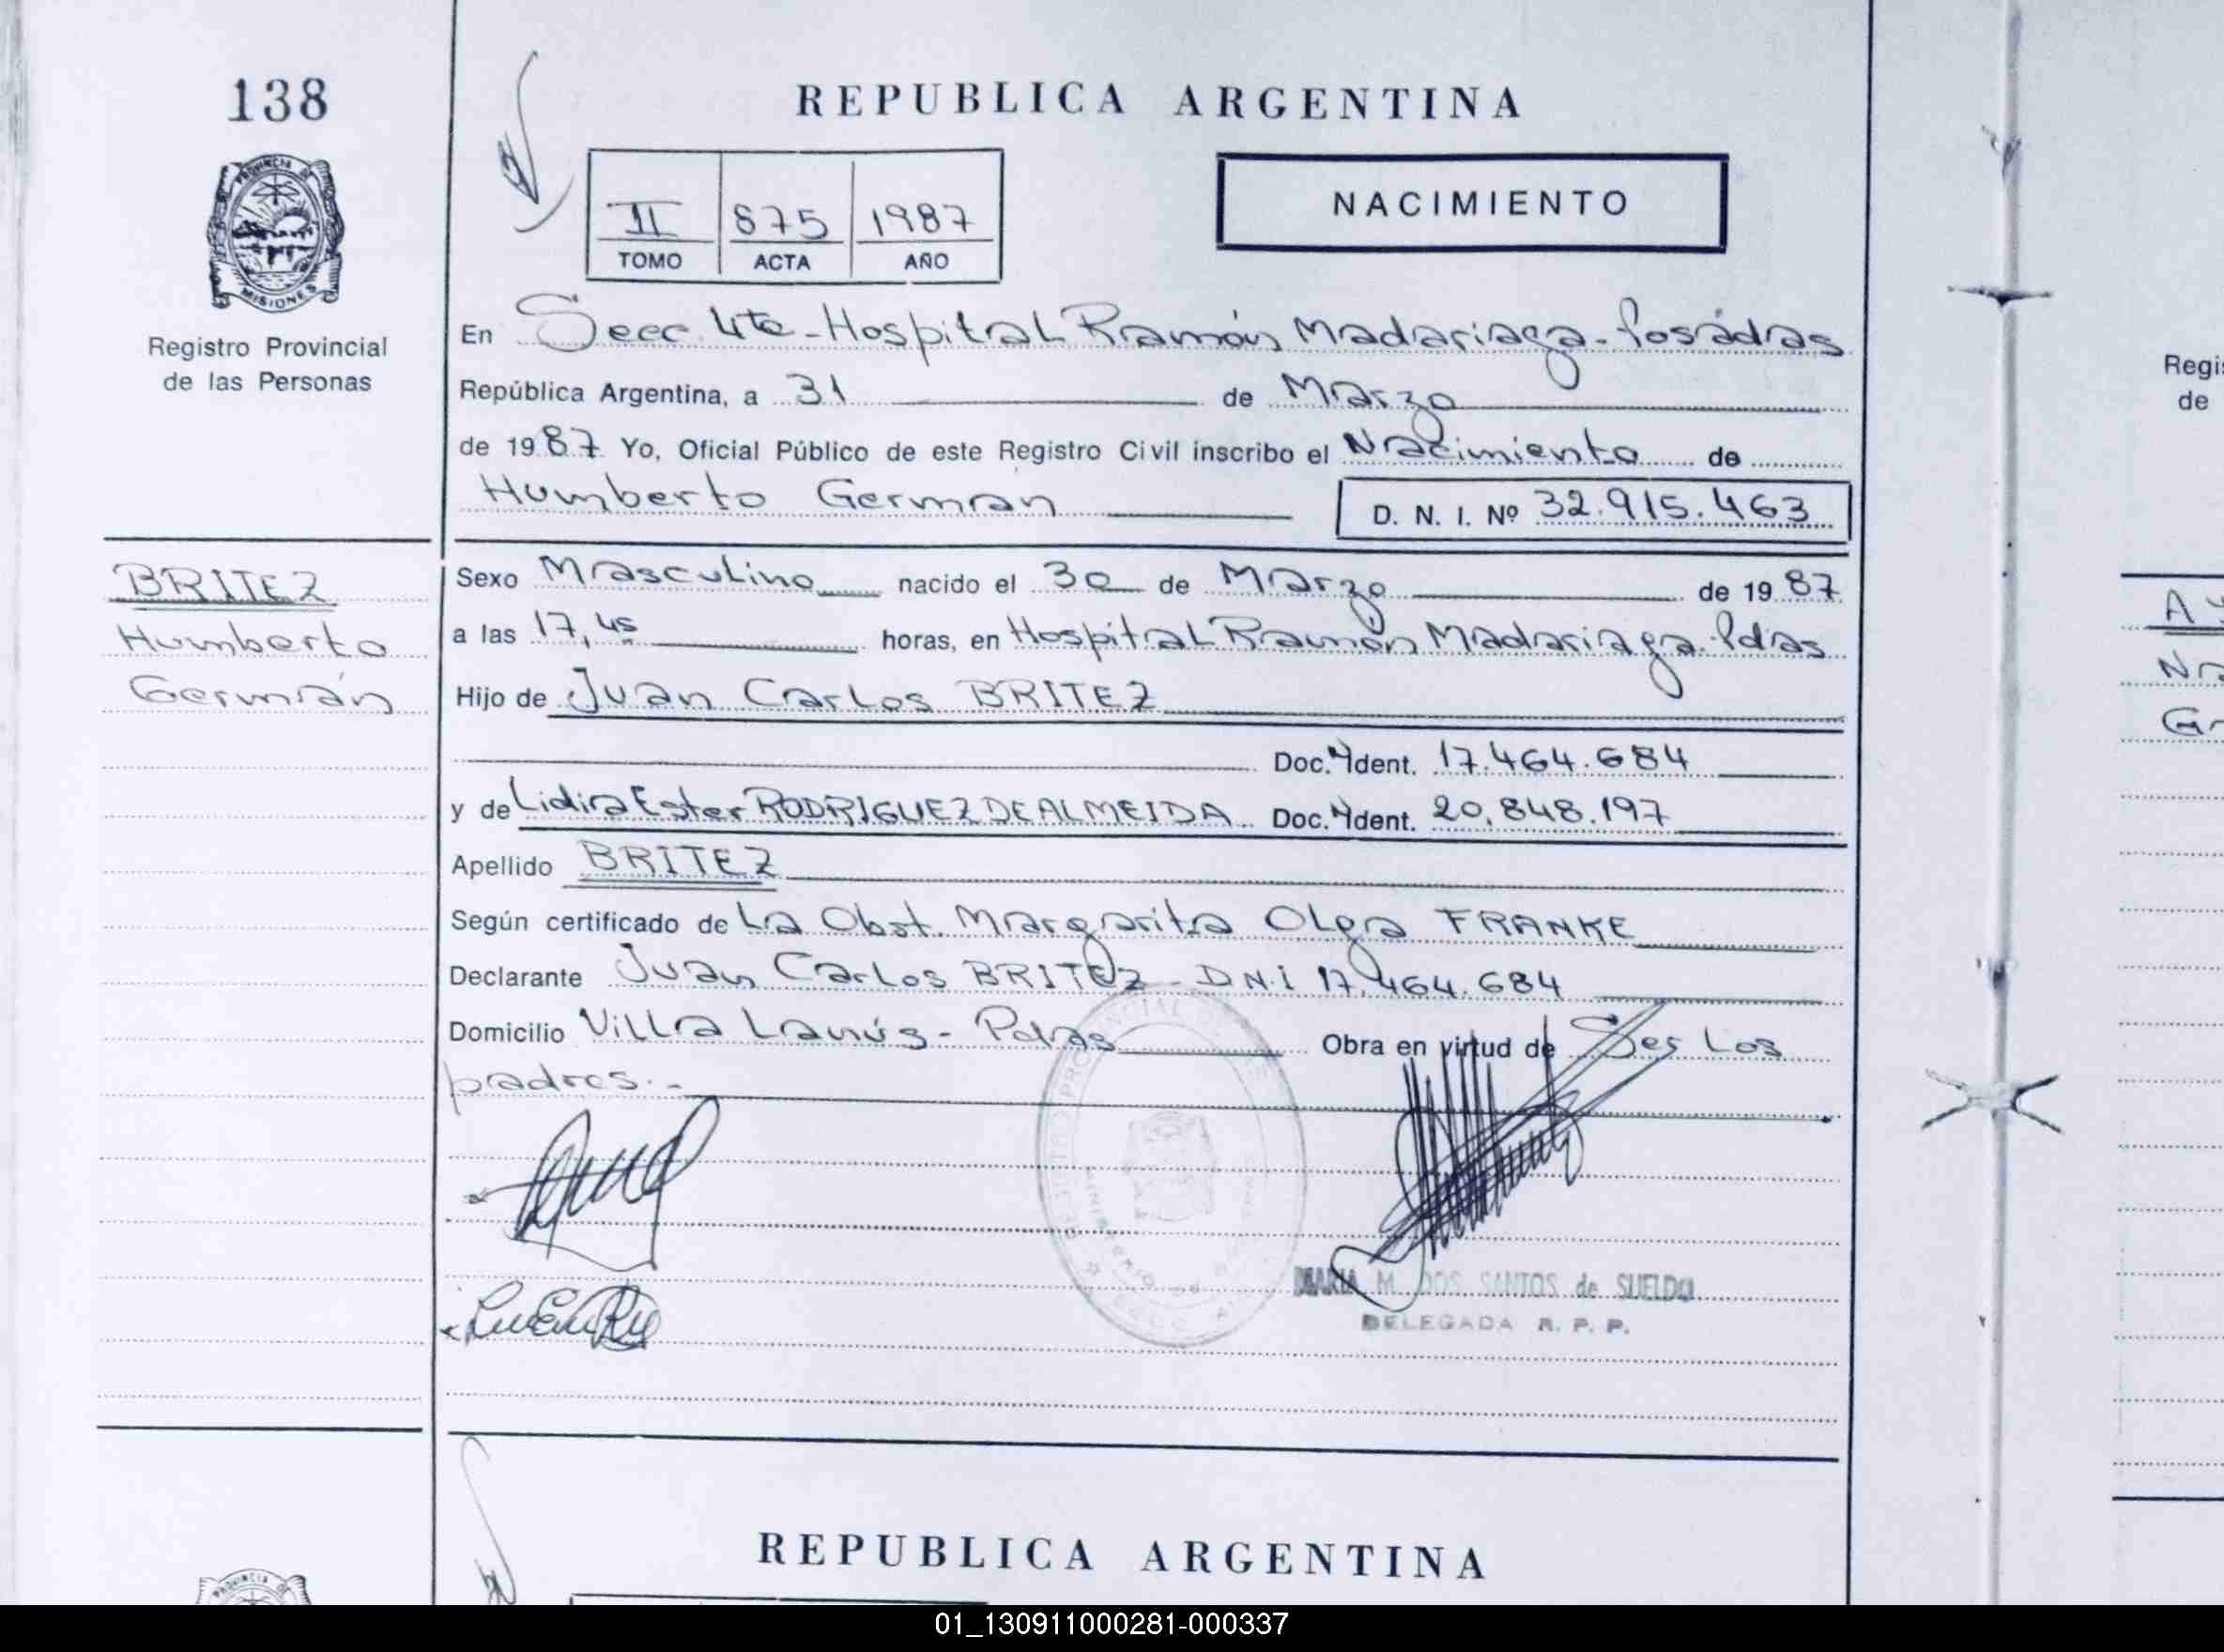 138
REPUBLICA ARGENTINA
PROVINCIA DE
MISIONES
NACIMIENTO
II 875 1987
TOMO ACTA AÑO
Registro Provincial
de las Personas
En Secc. 4ta - Hospital Ramón Madariaga - Posadas
República Argentina, a 31 de Marzo
de 1987 Yo, Oficial Público de este Registro Civil inscribo el Nacimiento de
Humberto Germán
D. N. I. Nº 32.915.463
BRITEZ
Humberto
Germán
Sexo Masculino nacido el 30 de Marzo de 1987
a las 17,45 horas, en Hospital Ramón Madariaga. Pdas
Hijo de Juan Carlos BRITEZ
Doc. Ident. 17.464.684
y de Lidia Ester RODRIGUEZ DE ALMEIDA Doc. Ident. 20.848.197
Apellido BRITEZ
Según certificado de La Obst. Margarita Olga FRANKE
Declarante Juan Carlos BRITEZ - D.N.I 17.464.684
Domicilio Villa Lanús - Pdas Obra en virtud de Ser Los
padres.-
MARIA M. DOS SANTOS de SUELDO
DELEGADA R. P. P.
REPUBLICA ARGENTINA
PROVINCIA
Regis
de
A
Na
G
01_130911000281-000337